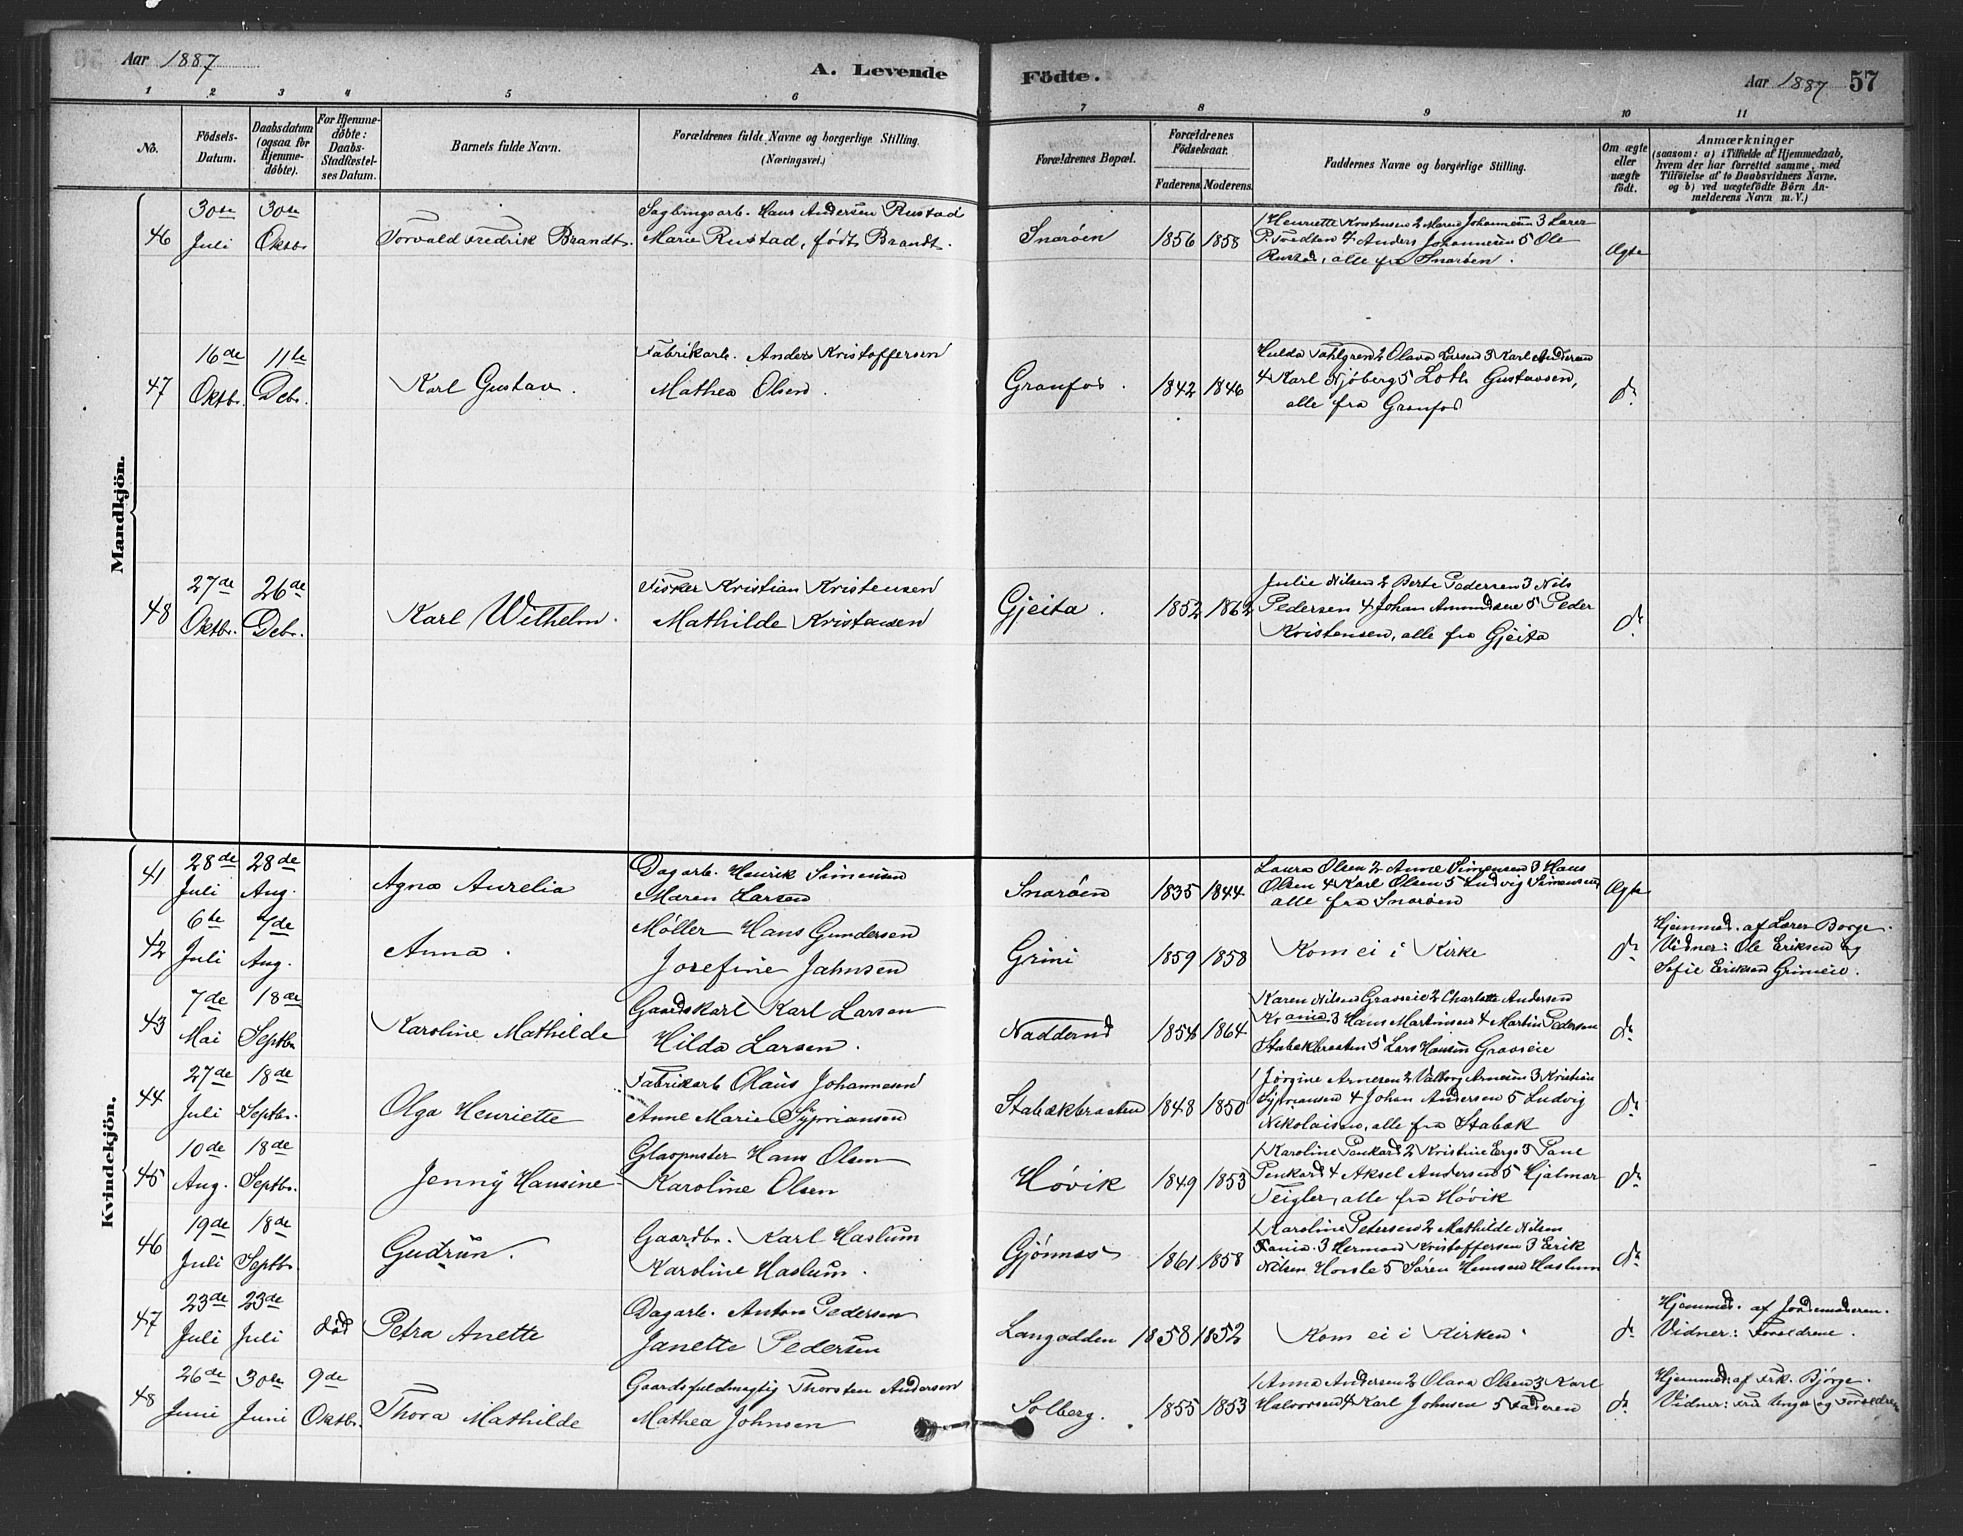 Aar 1887
A. Levende
Födte.
Aar 1887 57
1 2 3 4 5 6 7 8 9 10 11
No.
Födsels-
Datum.
Daabsdatum
(ogsaa for
Hjemme-
döbte).
For Hjemme-
döbte:
Daabs-
Stadfæstel-
ses Datum.
Barnets fulde Navn.
Forældrenes fulde Navne og borgerlige Stilling.
(Næringsvei.)
Forældrenes Bopæl.
Forældrenes
Födselsaar.
Faderens. Moderens.
Faddernes Navne og borgerlige Stilling.
Om ægte
eller
uægte
födt.
Anmærkninger
(saasom: a) i Tilfælde af Hjemmedaab,
hvem der har forrettet samme, med
Tilföielse af to Daabsvidners Navne.
og b) ved uægtefödte Börn An-
melderens Navn m. V.)
Mandkjön.
46
30te
Juli
30te
Oktbr.
Torvald Fredrik Brandt.
Sagbrugsarb. Hans Andersen Rustad
Marie Rustad, født Brandt.
Snarøen
1856 1858
1 Henriette Kristensen 2 Maren Johannesen 3 Lærer
P. Tvedten 4 Anders Johannesen 5 Ole
Rustad, alle fra Snarøen.
Ægte
47
16de
Oktbr.
11te
Debr.
Karl Gustav.
Fabrikarb. Anders Kristoffersen
Mathea Olsen.
Granfos.
1842 1846
Hulda Fahlgren 2 Olava Larsen 3 Karl Andersen
4 Karl Njöberg 5 Loth Gustavsen,
alle fra Granfos
do
48
27de
Oktbr.
26de
Debr.
Karl Wilhelm.
Fisker Kristian Kristensen
Mathilde Kristensen
Gjeita.
1852 1862
Julie Nilsen 2 Berte Pedersen 3 Nils
Pedersen 4 Johan Amundsen 5 Peder
Kristensen, alle fra Gjeita
do
Kvindekjön.
41
28de
Juli
28de
Aug.
Agna Aurelia
Dagarb. Henrik Simensen
Maren Larsen
Snarøen
1835 1844
Laura Olsen 2 Anne Simensen 3 Hans
Olsen 4 Karl Olsen 5 Ludvig Simensen
alle fra Snarøen
Ægte
42
6te
Juli
7de
Aug.
Anna.
Møller Hans Gundersen
Josefine Jahnsen
Grini
1859 1858
Kom ei i Kirke
do
Hjemmed. af Lærer Borge.
Vidner: Ole Eriksen og
Sofie Eriksen Grinieie.
43
7de
Mai
18de
Septbr.
Karoline Mathilde
Gaardskarl Karl Larsen
Hilda Larsen.
Nadderud
1854 1864
Karen Nilsen Gravseie 2 Charlotte Andersen
Krania. 3 Hans Martinsen 4 Martin Pedersen
Stabækbraaten 5 Lars Hansen Gravseie
do
44
27de
Juli
18de
Septbr.
Olga Henriette
Fabrikarb Olaus Johannesen
Anne Marie Syprriansen
Stabækbraaten
1848 1850
1 Jørgine Arnesen 2 Valborg Arnesen 3 Kristian
Sypriansen 4 Johan Andersen 5 Ludvig
Nikolaisen, alle fra Stabæk
do
45
10de
Aug.
18de
Septbr.
Jenny Hansine
Glaspuster Hans Olsen
Karoline Olsen
Høvik
1849 1853
1 Karoline Penkard 2 Kristine Ergs 3 Pane
Penkard 4 Aksel Andersen 5 Hjalmar
Teigler, alle fra Høvik
do
46
19de
Juli
18de
Septbr.
Gudrun.
Gaardbr. Karl Haslum
Karoline Haslum.
Gjønnæs
1861 1858
1 Karoline Petersen 2 Mathilde Nilsen
3 Herman Kristoffersen 3 Erik
Nilsen Hosle 5 Søren Hansen Haslum
do
47
23de
Juli
23de
Juli
død
Petra Anette
Dagarb. Anton Pedersen
Janette Pedersen
Langodden
1858 1852
Kom ei i Kirken.
do
Hjemmed. af Jordemoderen.
Vidner: Forældrene.
48
26de
Juni
30te
Juni
9de
Oktbr.
Thora Mathilde
Gaardsfuldmægtig Thorsten Andersen
Mathea Johnsen
Solberg.
1855 1853
1 Anna Andersen 2 Olava Olsen 3 Karl
Halvorsen 4 Karl Johnsen 5 Faderen
do
Hjemmed. af Frk. Bjørge.
Vidner: Fru Unger og Forældrene